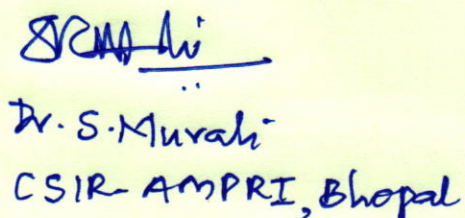 Dr. S. Murali
CSIR- AMPRI, Bhopal